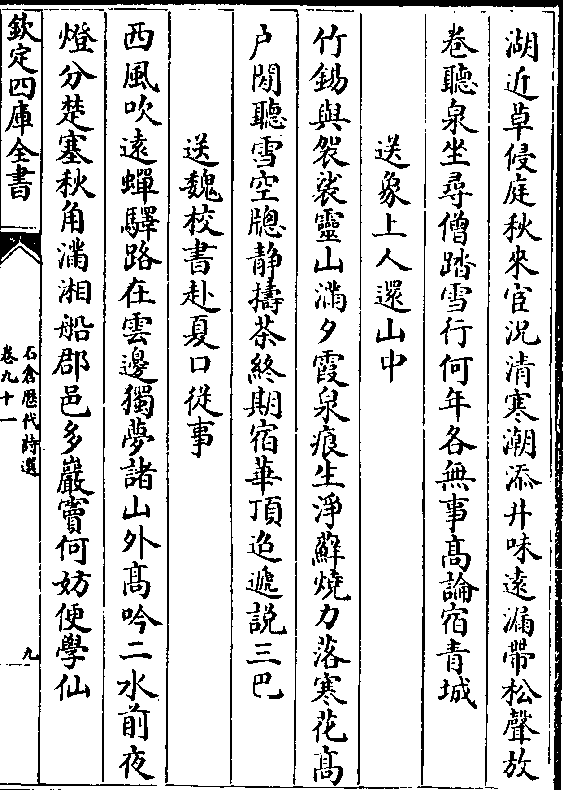 湖近草侵庭秋來宦況清寒潮添井味遠漏帶松聲放
卷聽泉坐尋僧踏雪行何年各無事髙論宿青城
送象上人還山中
竹錫與袈裟靈山滿夕霞泉痕生淨蘚燒力落寒花髙
户閑聽雪空牕静擣茶終期宿華頂迢遞説三巴
送魏校書赴夏口從事
西風吹遠蟬驛路在雲邊獨夢諸山外髙吟二水前夜
燈分楚塞秋角滿湘船郡邑多巖竇何妨便學仙
欽定四庫全書
石倉歴代詩選
卷九十一
九